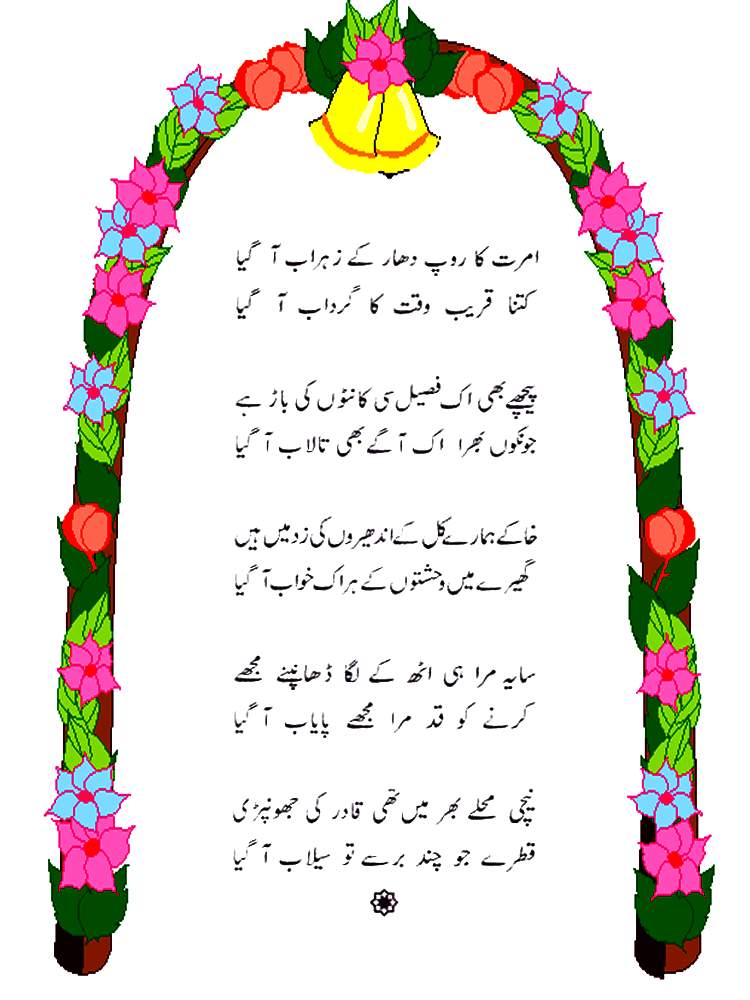 امرت کا روپ دھار کے زہراب آ گیا
کتنا قریب وقت کا گرداب آ گیا
پیچھے بھی اک فصیل سی کانٹوں کی باڑ ہے
جونکوں بھرا اک آگے بھی تالاب آ گیا
خاکے ہمارے کل کے اندھیروں کی زد میں ہیں
گھیرے میں وحشتوں کے ہر اک خواب آ گیا
سایہ مرا ہی اٹھ کے لگا ڈھانپنے مجھے
کرنے کو قد مرا مجھے پایاب آ گیا
نیچی محلے بھر میں تھی قادر کی جھونپڑی
قطرے جو چند برسے تو سیلاب آ گیا